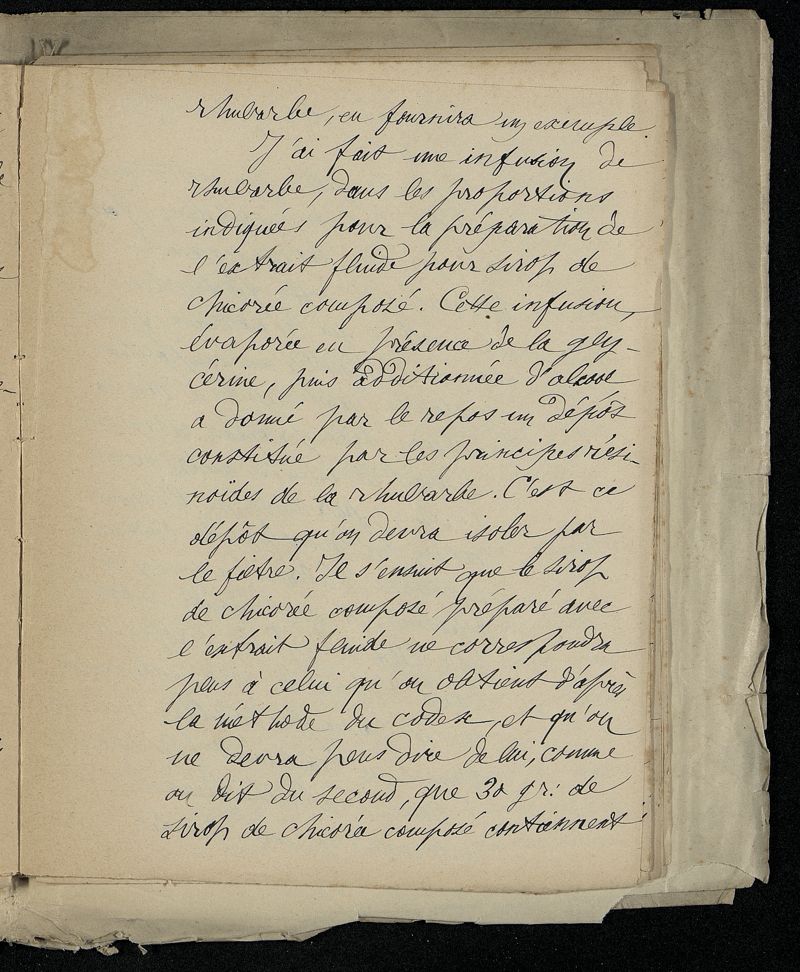 rhubarbe, en fournira un exemple.
J'ai fait une infusion de
rhubarbe, dans les proportions
indiquées pour la préparation de
l'extrait fluide pour sirop de
chicorée composé. Cette infusion,
évaporée en présence de la gly-
cérine, puis additionnée d'alcool
a donné par le repos un dépôt
constitué par les principes rési-
noïdes de la rhubarbe. C'est ce
dépôt qu'on devra isoler par
le filtre. Il s'ensuit que le sirop
de chicorée composé préparé avec
l'extrait fluide ne correspondra
pas à celui qu'on obtient d'après
la méthode du codex, et qu'on
ne devra pas dire de lui, comme
on dit du second, que 30 gr: de
sirop de chicorée composé contiennent